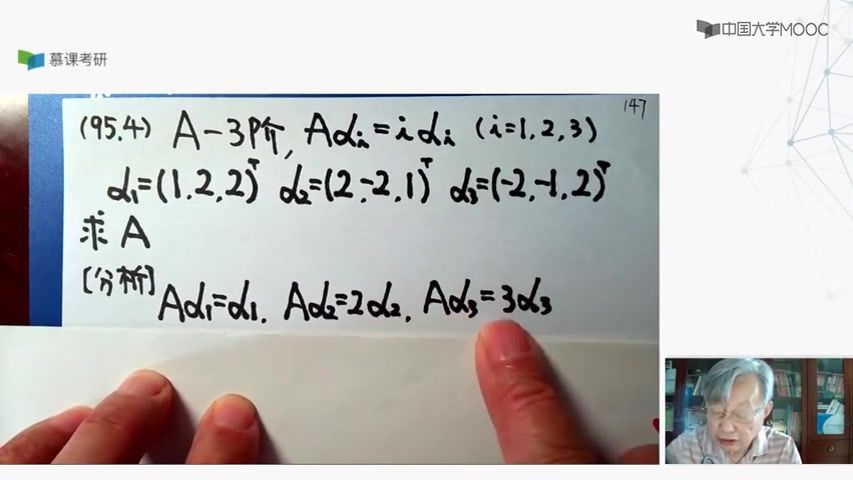 中国大学MOOC
慕课考研
147
(95.4) A-3阶, Aαᵢ=iαᵢ (i=1,2,3)
α₁=(1,2,2)ᵀ α₂=(2,-2,1)ᵀ α₃=(-2,-1,2)ᵀ
求 A
[分析]
Aα₁=α₁. Aα₂=2α₂, Aα₃=3α₃